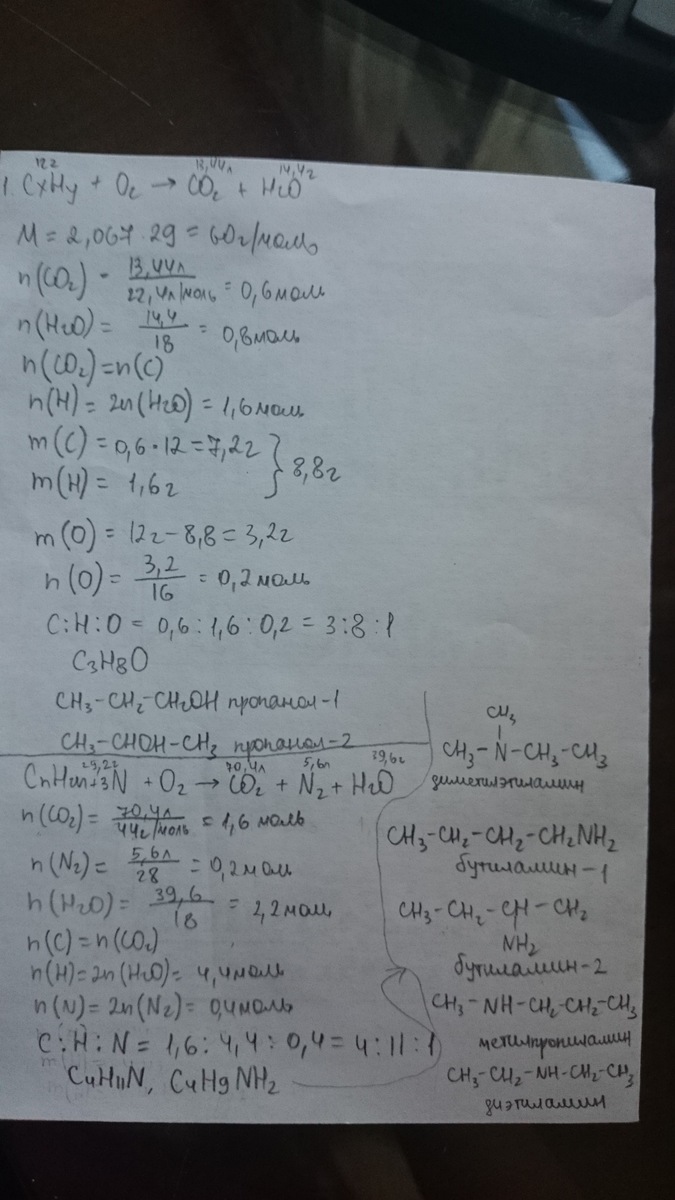 12г 13,44л 14,4г
1. CxHy + O₂ → CO₂ + H₂O
M = 2,067 · 29 = 60г/моль
n(CO₂) = 13,44л / 22,4л/моль = 0,6моль
n(H₂O) = 14,4 / 18 = 0,8моль
n(CO₂)=n(C)
n(H) = 2n(H₂O) = 1,6моль
m(C) = 0,6·12=7,2г
m(H) = 1,6г } 8,8г
m(O) = 12г-8,8 = 3,2г
n(O) = 3,2 / 16 = 0,2моль
C:H:O = 0,6 : 1,6 : 0,2 = 3:8:1
C₃H₈O
CH₃-CH₂-CH₂OH пропанол-1
CH₃-CHOH-CH₃ пропанол-2
29,2г 70,4л 5,6л 39,6г
CnH2n+3N + O₂ → CO₂ + N₂ + H₂O
n(CO₂) = 70,4л / 44г/моль = 1,6 моль
n(N₂) = 5,6л / 28 = 0,2моль
n(H₂O) = 39,6 / 18 = 2,2моль
n(C) = n(CO₂)
n(H)=2n(H₂O)= 4,4моль
n(N)=2n(N₂)= 0,4моль
C:H:N = 1,6 : 4,4 : 0,4 = 4:11:1
C₄H₁₁N, C₄H₉NH₂
CH₃
CH₃-N-CH₃-CH₃
диметилэтиламин
CH₃-CH₂-CH₂-CH₂NH₂
бутиламин-1
CH₃-CH₂-CH-CH₂
NH₂
бутиламин-2
CH₃-NH-CH₂-CH₂-CH₃
метилпропиламин
CH₃-CH₂-NH-CH₂-CH₃
диэтиламин